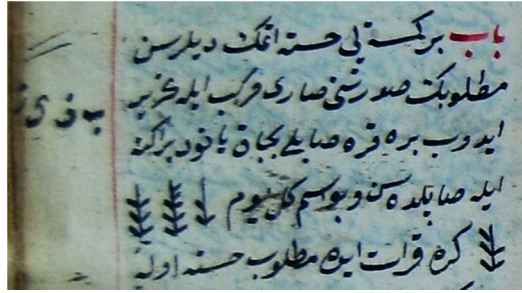 باب بر كمسه يى خسته اتمك ديلرسن
مطلوبك صورتنى صارى مركب ايله تحرير
ايدوب بره قره صابلى بچاق ياخود بر اكنه
ايله صاپلده سن و بو اسم كل يوم
كره قرات ايده مطلوب خسته اوله